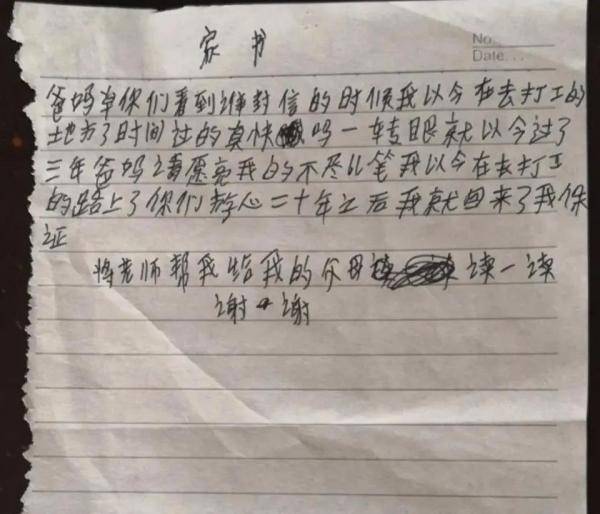 家书
No.
Date.
爸妈单你们看到这封信的时候我以今在去打工的
地方了时间过的真快吗一转眼就以今过了
三年爸妈请愿亮我的不尽儿笔我以今在去打工
的路上了你们放心二十年之后我就回来了我保
证
将老师帮我给我的父母读一读
谢谢